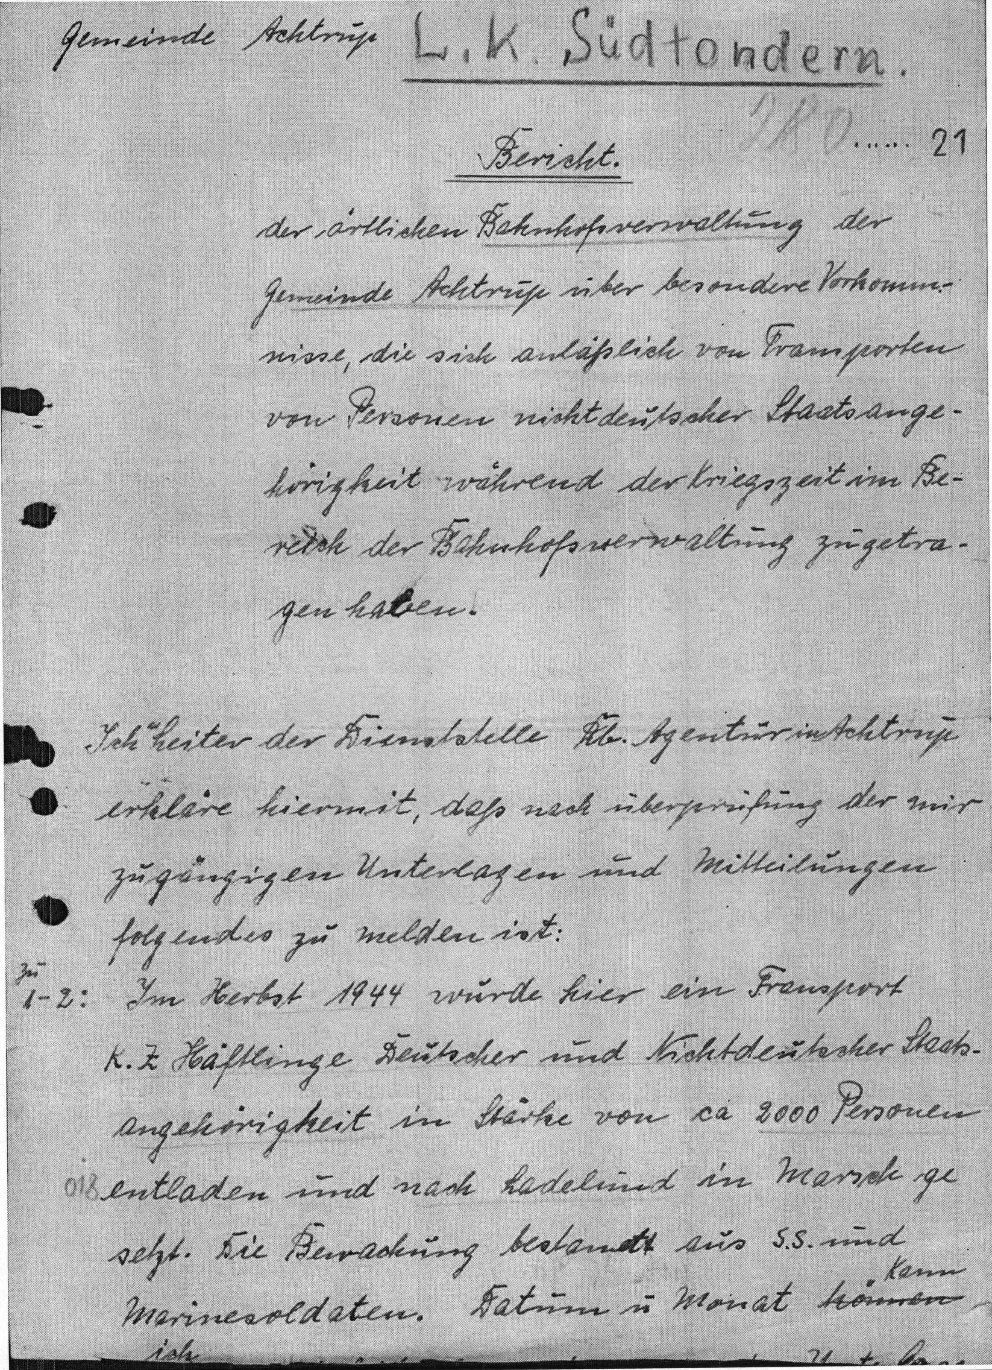 Gemeinde Achtrup L.K. Südtondern.
280 ..... 21
Bericht.
der örtlichen Bahnhofsverwaltung der
Gemeinde Achtrup über besondere Vorkomm-
nisse, die sich anläßlich von Transporten
von Personen nichtdeutscher Staatsange-
hörigkeit während der Kriegszeit im Be-
reich der Bahnhofsverwaltung zugetra-
gen haben.
Ich Leiter der Dienststelle Kb. Agentur in Achtrup
erkläre hiermit, daß nach überprüfung der mir
zugängigen Unterlagen und Mitteilungen
folgendes zu melden ist:
zu
1-2: Im Herbst 1944 wurde hier ein Transport
K.Z Häftlinge Deutscher und Nichtdeutscher Staats-
angehörigkeit in Stärke von ca 2000 Personen
018 entladen und nach Ladelund in Marsch ge
setzt. Die Bewachung bestand aus S.S. und
kann
Marinesoldaten. Datum u Monat können
ich